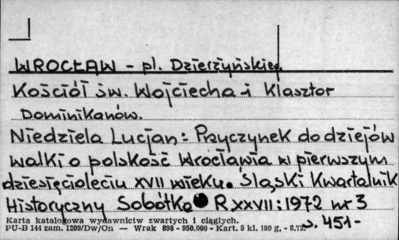 WROCŁAW - pl. Dzierżyńskiego
Kościół św. Wojciecha i Klasztor
Dominikanów.
Niedziela Lucjan: Przyczynek do dziejów
walki o polskość Wrocławia w pierwszym
dziesięcioleciu XVII wieku. Śląski Kwartalnik
Historyczny Sobótka R.XXVII:1972 nr 3
s. 451-
Karta katalogowa wydawnictw zwartych i ciągłych.
PU-B 144 zam. 1209/Dw/On — Wrak 898 - 950.000 - Kart. 5 kl. 180 g. - 8.72.